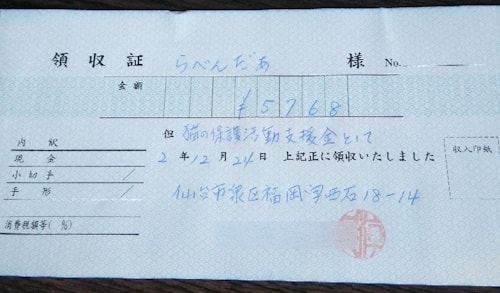 領収証 らべんだあ 様 No.
金額 ¥5768
但 猫の保護活動支援金として
2年12月24日 上記正に領収いたしました
内訳
現金
小切手 /
手形 /
消費税額等( %)
収入印紙
仙台市泉区福岡字西石18-14